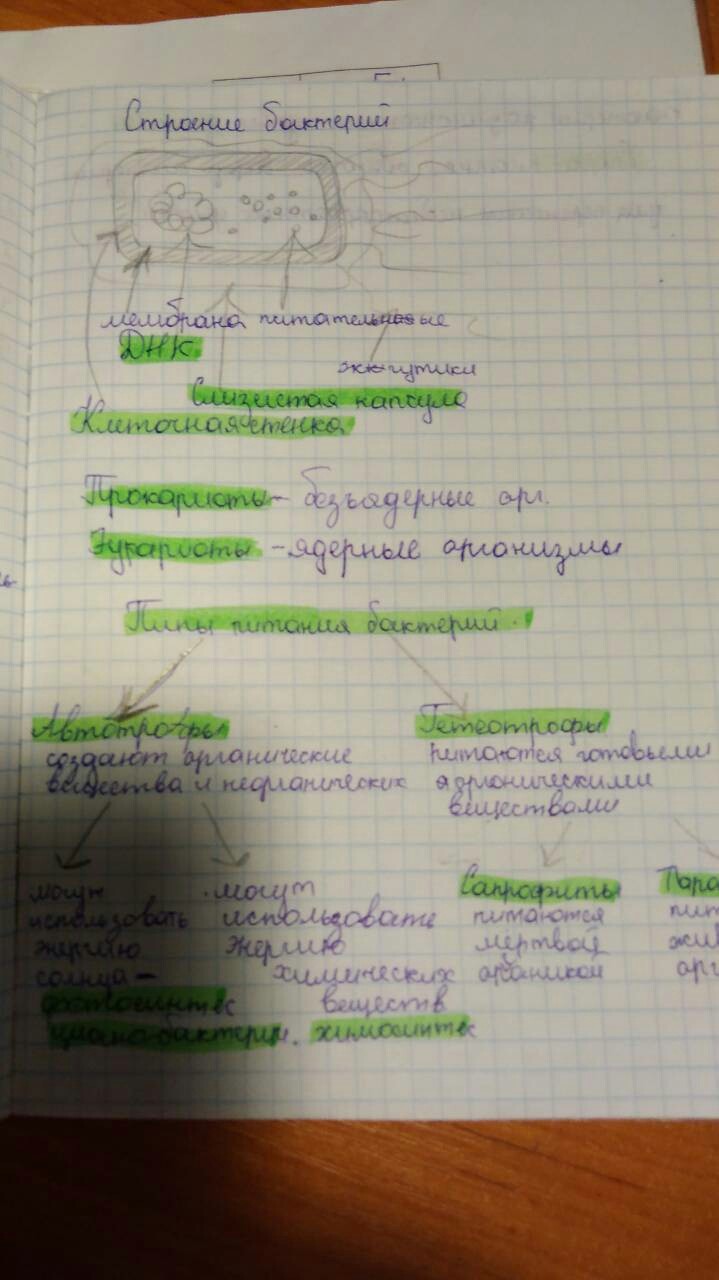 Строение бактерий
мембрана питательные
ДНК
жгутики
Слизистая капсула
Клеточная стенка
Прокариоты - безъядерные орг.
Эукариоты - ядерные организмы
Типы питания бактерий.
Автотрофы
Гетеотрофы
создают органические
питаются готовыми
вещества и неорганических
органическими
веществами
могут
использовать
энергию
солнца -
фотосинтес
циано-бактерии.
могут
использовать
энергию
химических
веществ
химосинтес
Сапрофиты
питаются
мертвой
органикой
Пара
пит
жив
орг